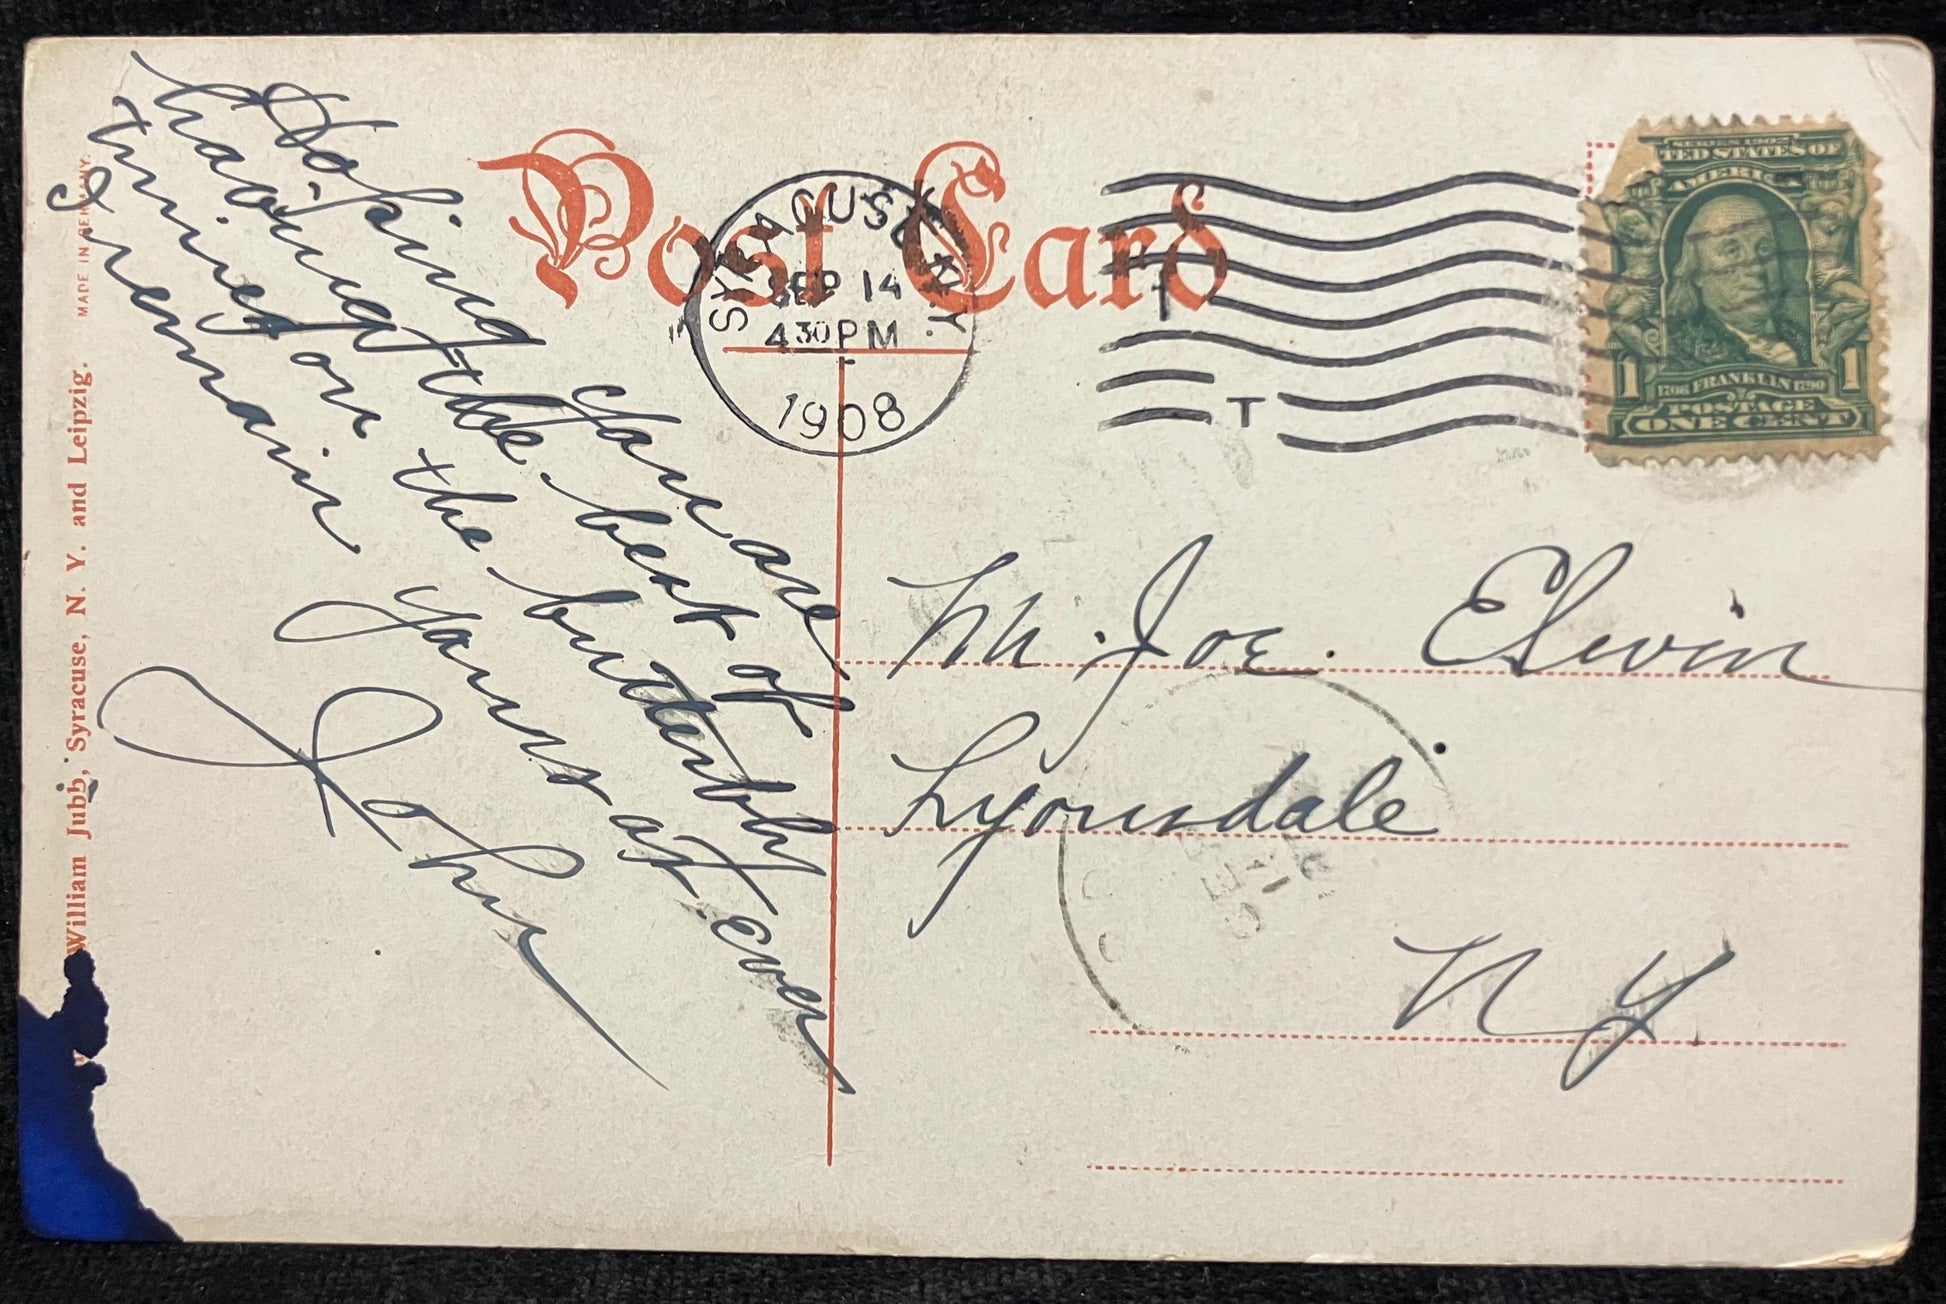 Hoping you are
having the best of
times on the butterfly
I remain yours as ever
John
MADE IN GERMANY.
William Jubb, Syracuse, N. Y. and Leipzig.
Post Card
SYRACUSE, N.Y.
SEP 14
430PM
1908
T
SERIES 1902
UNITED STATES OF
AMERICA
1706 FRANKLIN 1790
1 1
POSTAGE
ONE CENT
M. Joe. Elwin
Lyonsdale
N Y